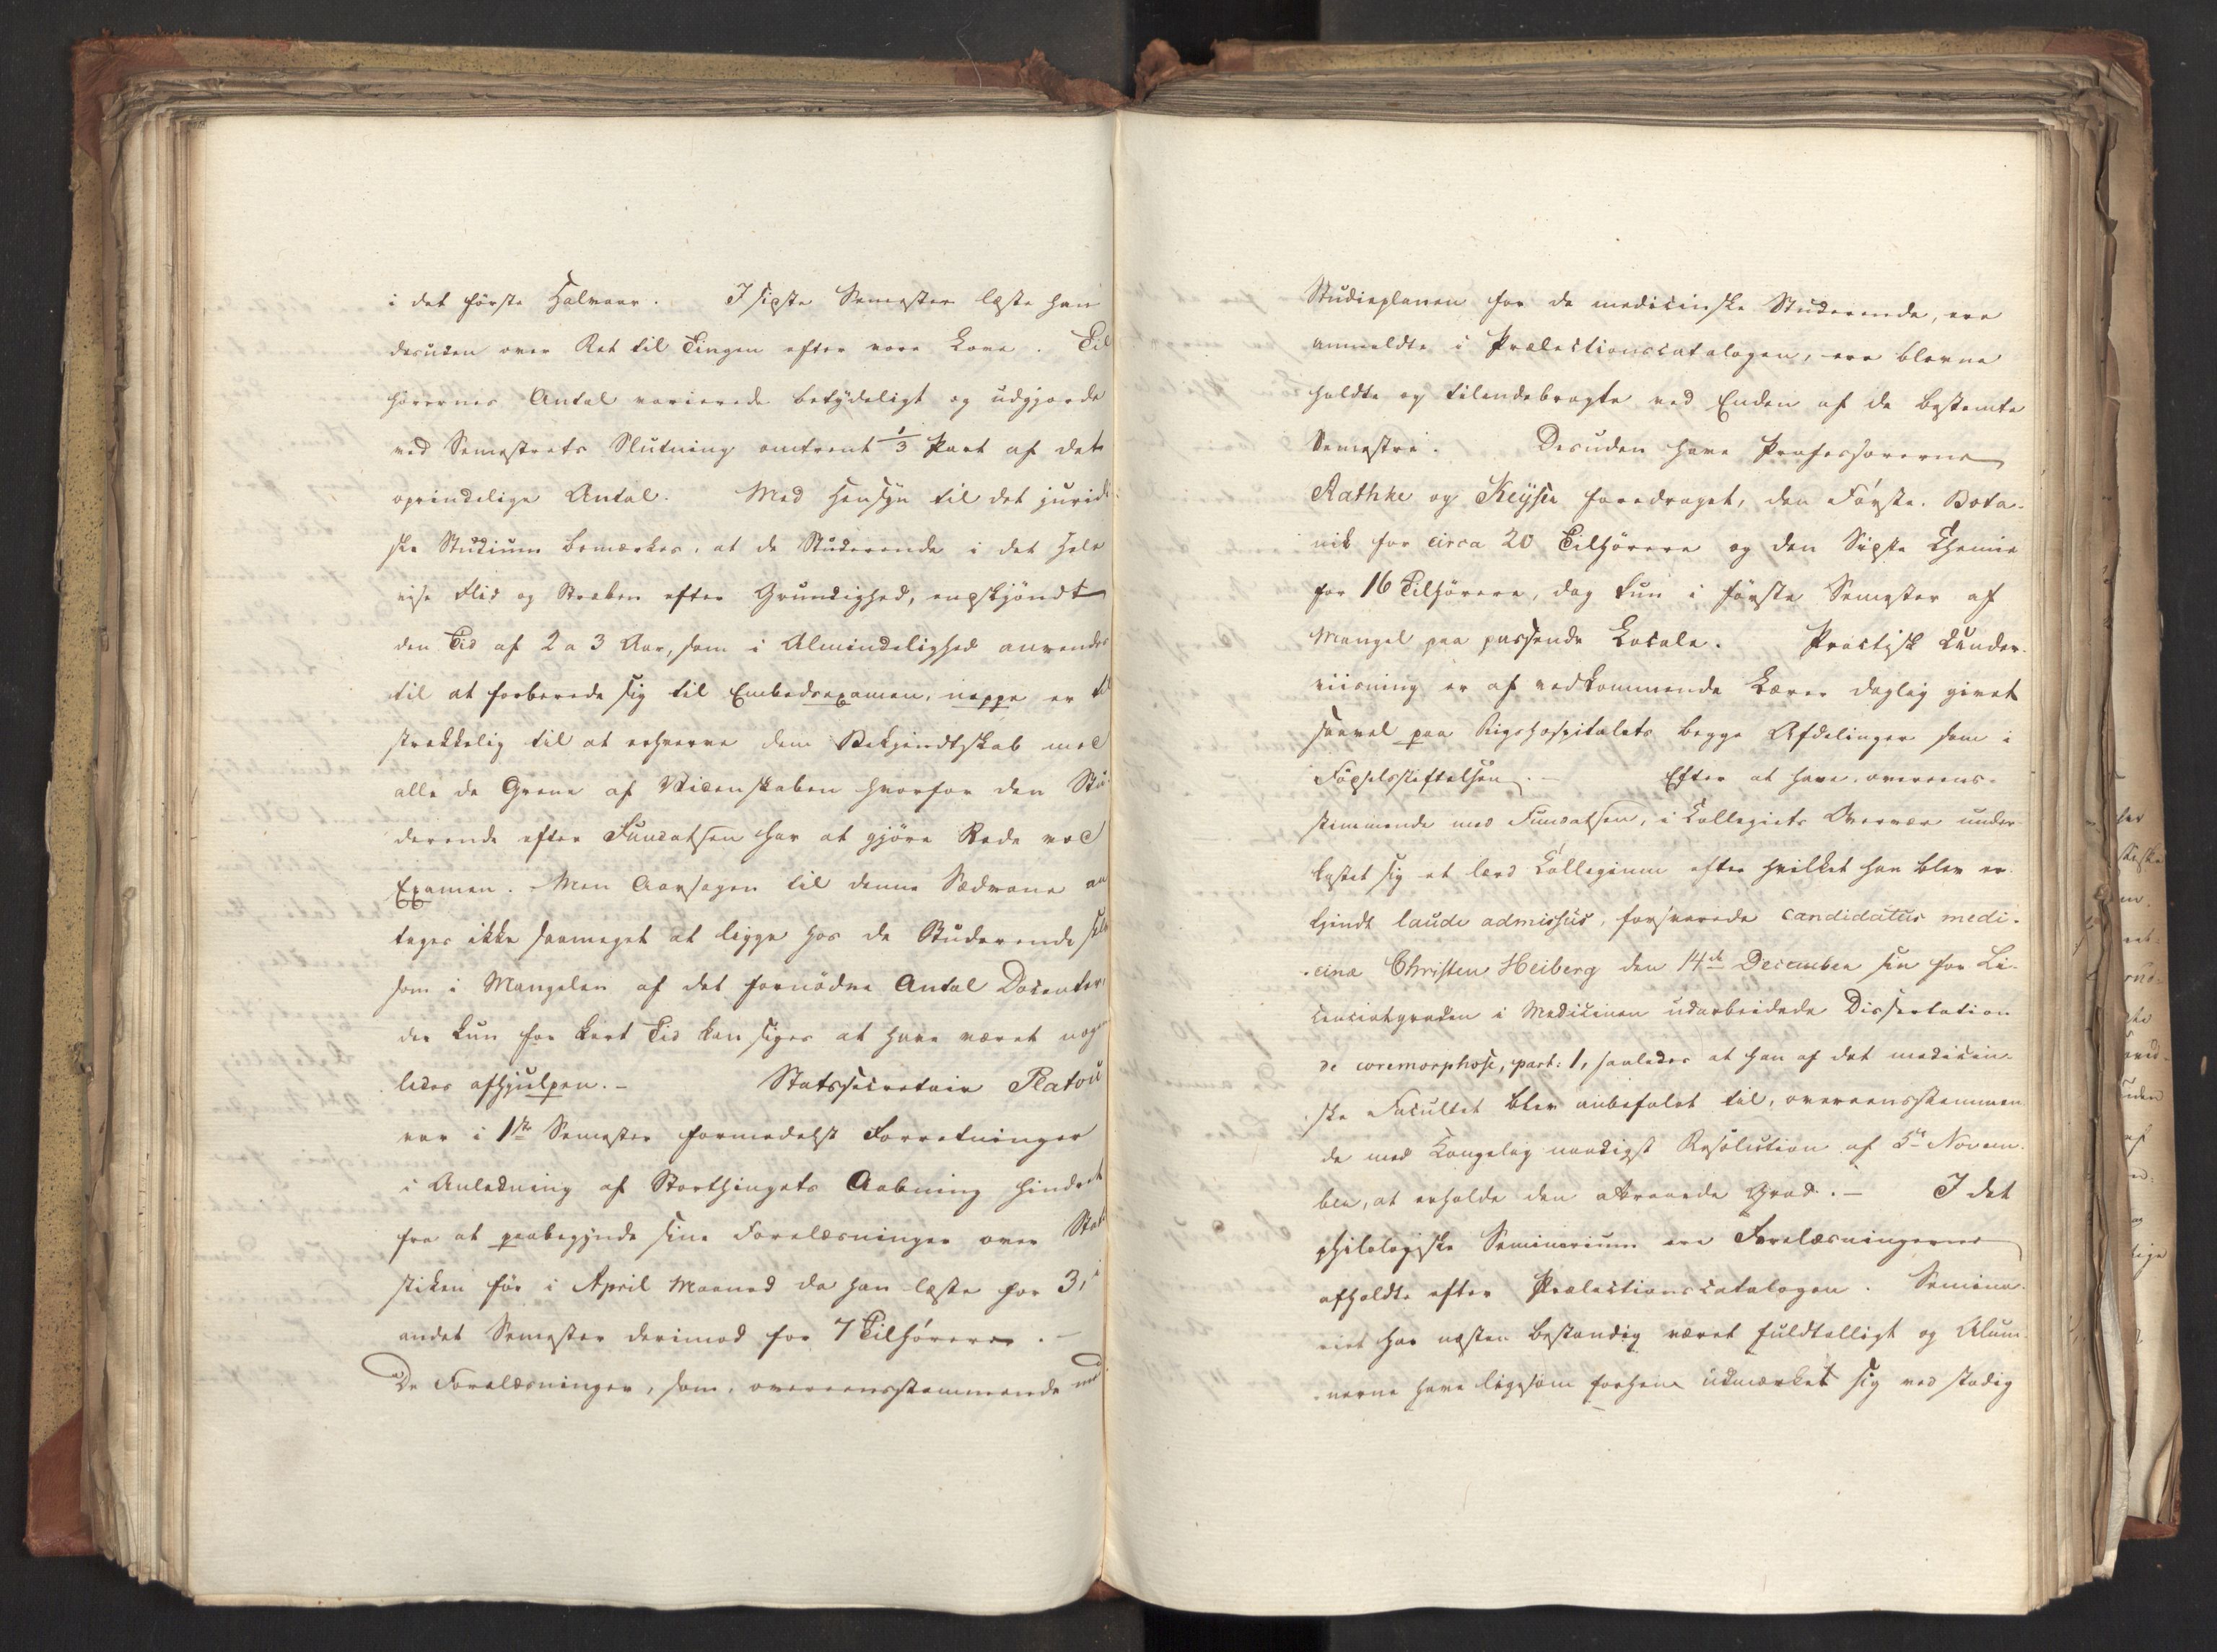 i det første Halvaar. I sidste Semester læste han
desuden over Ret til Tingen efter vore Love. Til
hørernes Antal varierede betydeligt og udgjorde
ved Semestrets Slutning omtrent 1/3 Part af det
oprindelige Antal. Med Hensyn til det juridi-
ske Studium bemærkes, at de Studerende i det Hele
vise Flid og Stræben efter Grundighed, endskjøndt
den Tid af 2 a 3 Aar, som i Almindelighed anvendes
til at forberede sig til Embedsexamen, neppe er til
strækkelig til at erhverve dem Bekjendtskab med
alle de Grene af Videnskaben hvorfor den Stu-
derende efter Fundatsen har at gjøre Rede ved
Examen. Men Aarsagen til denne Sædvane an
tages ikke saameget at ligge hos de Studerende selv
som i Mangelen af det fornødne Antal Docenter,
der kun for kort Tid kan siges at have været nogen
ledes afhjulpen. – Statssecretair Platou
var i 1ste Semester formedelst Forretninger
i Anledning af Storthingets Aabning hindret
fra at paabegynde sine Forelæsninger over Stati
stiken før i April Maaned da han læste for 3, i
andet Semester derimod for 7 Tilhørere. –
De Forelæsninger, som, overeensstemmende med
Studieplanen for de medicinske Studerende, ere
anmeldte i Prælectionscatalogen, ere blevne
holdte og tilendebragte ved Enden af de bestemte
Semestre. Desuden have Professorerne
Rathke og Keyser foredraget, den Første, Bota-
nik for circa 20 Tilhørere og den Sidste Chemie
for 16 Tilhørere, dog kun i første Semester af
Mangel paa passende Locale. Practisk Under-
viisning er af vedkommende Lærer daglig givet
saavel paa Rigshospitalets begge Afdelinger som i
Fødselsstiftelsen. – Efter at have, overeens-
stemmende med Fundatsen, i Collegiets Overvær under-
kastet sig et lærd Colloqium efter hvilket han blev er-
kjendt laude admissus, forsvarede candidatus medi-
cinæ Christen Heiberg den 14de December sin for Li-
centiatgraden i Medicinen udarbeidede Dissertation
de coremorphosi, part: 1, saaledes at han af det medicin-
ske Facultet blev anbefalet til, overeensstemmen
de med Kongelig naadigst Resolution af 5te Novem-
ber, at erholde den attraaede Grad. – I det
philologiske Seminarium ere Forelæsningerne
afholdte efter Prælectionscatalogen. Semina-
riet har næsten bestandig været fuldtalligt og Alum-
nerne have ligesom forhen udmærket sig ved stadig